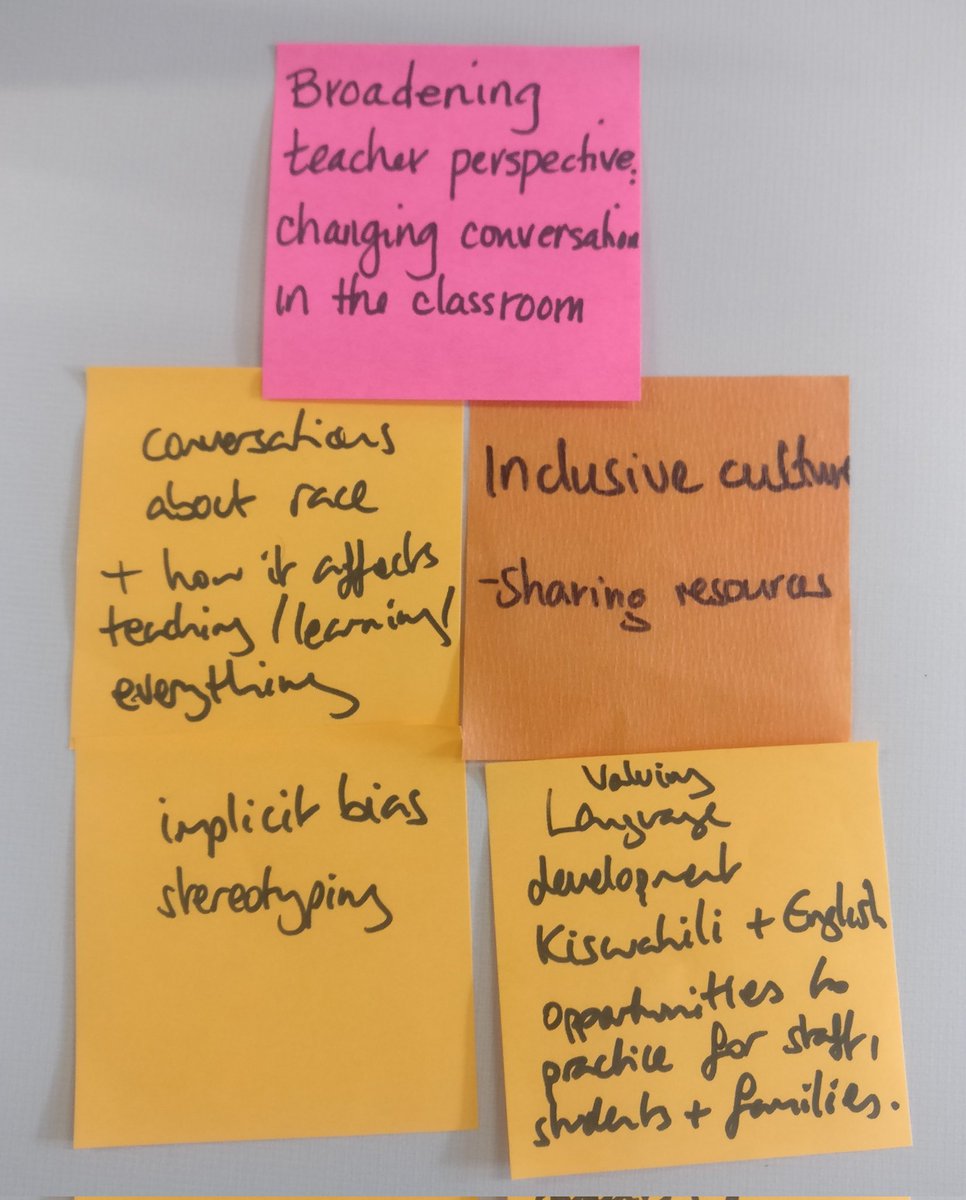 Broadening
teacher perspective:
changing conversation
in the classroom
conversations
about race
+ how it affects
teaching / learning /
everything
Inclusive culture
- Sharing resources
implicit bias
stereotyping
Valuing
Language
development
Kiswahili + English
opportunities to
practice for staff,
students + families.